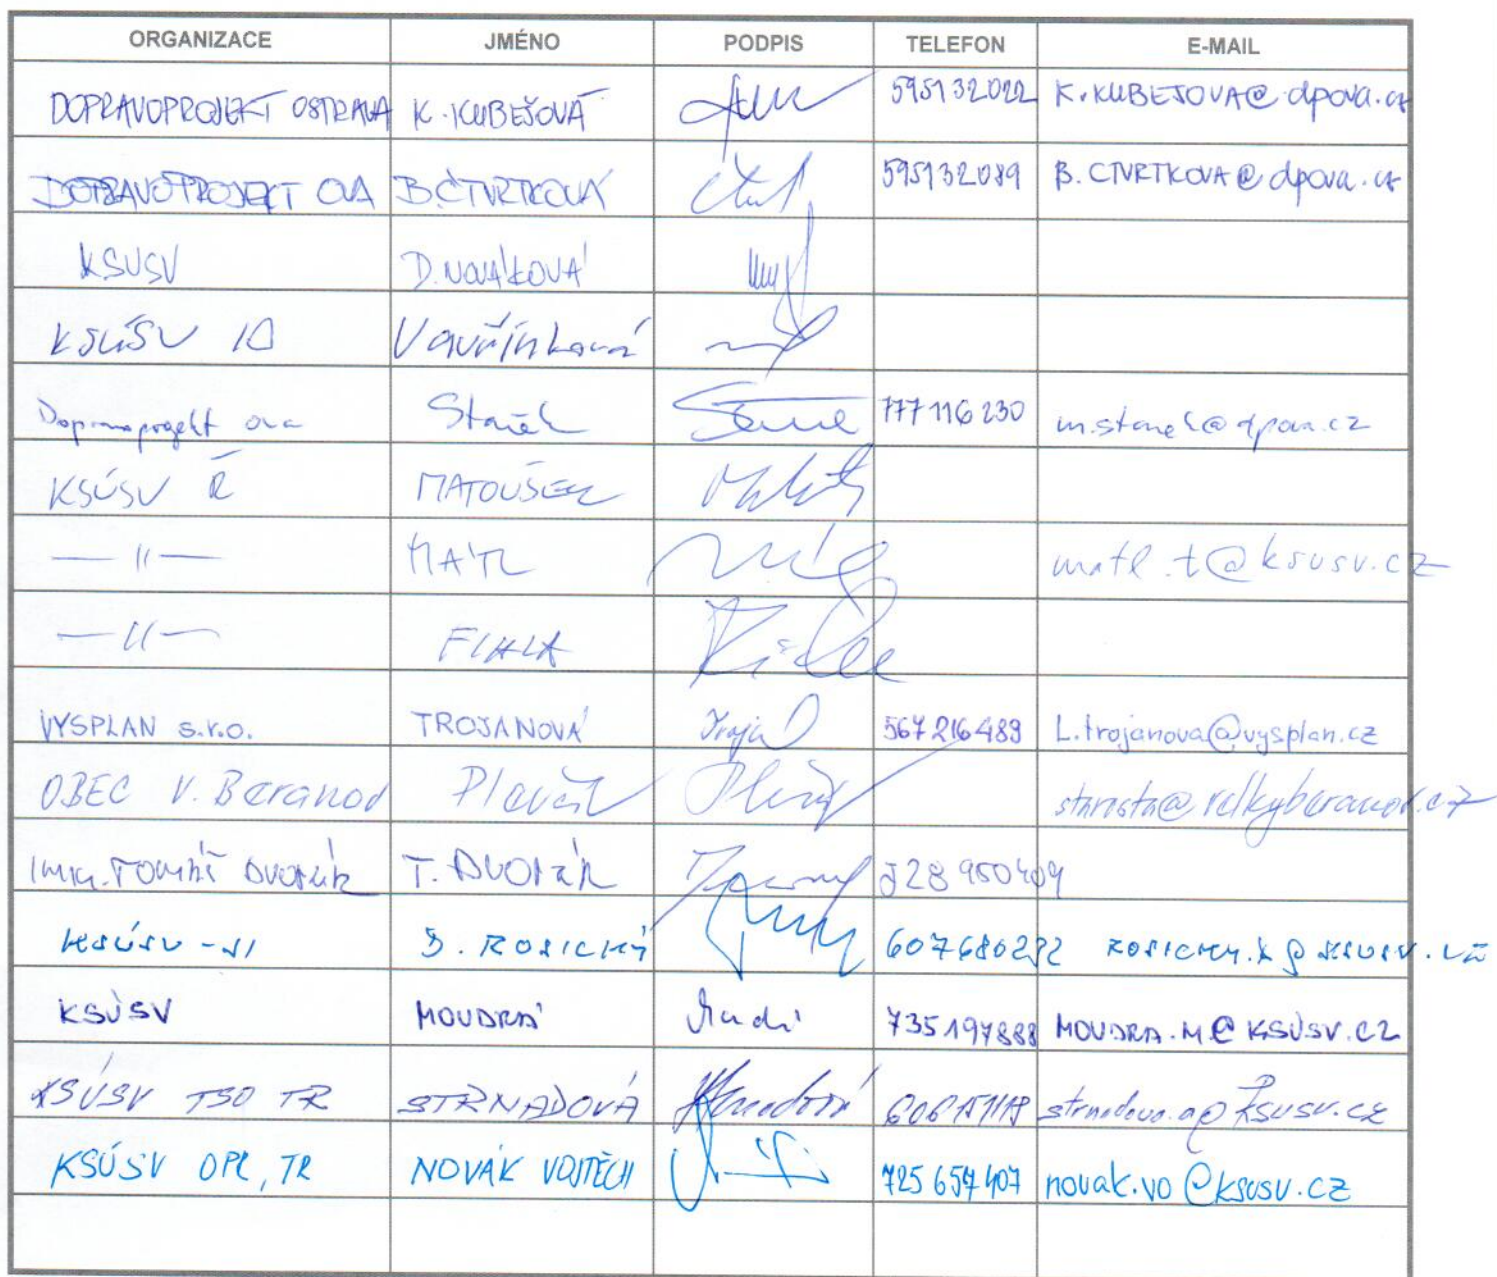 ORGANIZACE JMÉNO PODPIS TELEFON E-MAIL
DOPRAVOPROJEKT OSTRAVA K. KUBEŠOVÁ 595132022 K.KUBESOVA@dpova.cz
DOPRAVOPROJEKT OVA B.ČTVRTKOVÁ 595132089 B.CTVRTKOVA@dpova.cz
KSUSV D. NOVÁKOVÁ
KSÚSV Vavřínková
Dopravoprojekt ova Staněk 777 116 230 m.stanek@dpova.cz
KSÚSV Ř MATOUŠEK
— II — MÁTL matl.t@ksusv.cz
— II — FIALA
VYSPLAN s.r.o. TROJANOVÁ 567 216 489 L.trojanova@vysplan.cz
OBEC V. Beranov starosta@velkyberanov.cz
Tomáš Dvořák T. Dvořák 728 950409
KSÚSV - JI ROSICKÝ 607680232 ROSICKY.k@KSUSV.CZ
KSÚSV MOUDRÁ 735197888 MOUDRA.M@KSÚSV.CZ
KSÚSV TSO TR STRNADOVÁ strnadova.a@ksusv.cz
KSÚSV OPŘ, TR NOVÁK VOJTĚCH 725 657 407 novak.vo@ksusv.cz